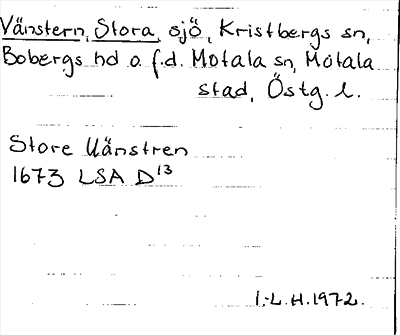 Vänstern, Stora, sjö, Kristbergs sn,
Bobergs hd o. f.d. Motala sn, Motala
stad, Östg. l.
Store Uänstren
1673 LSA D13
I.-L.H.1972.